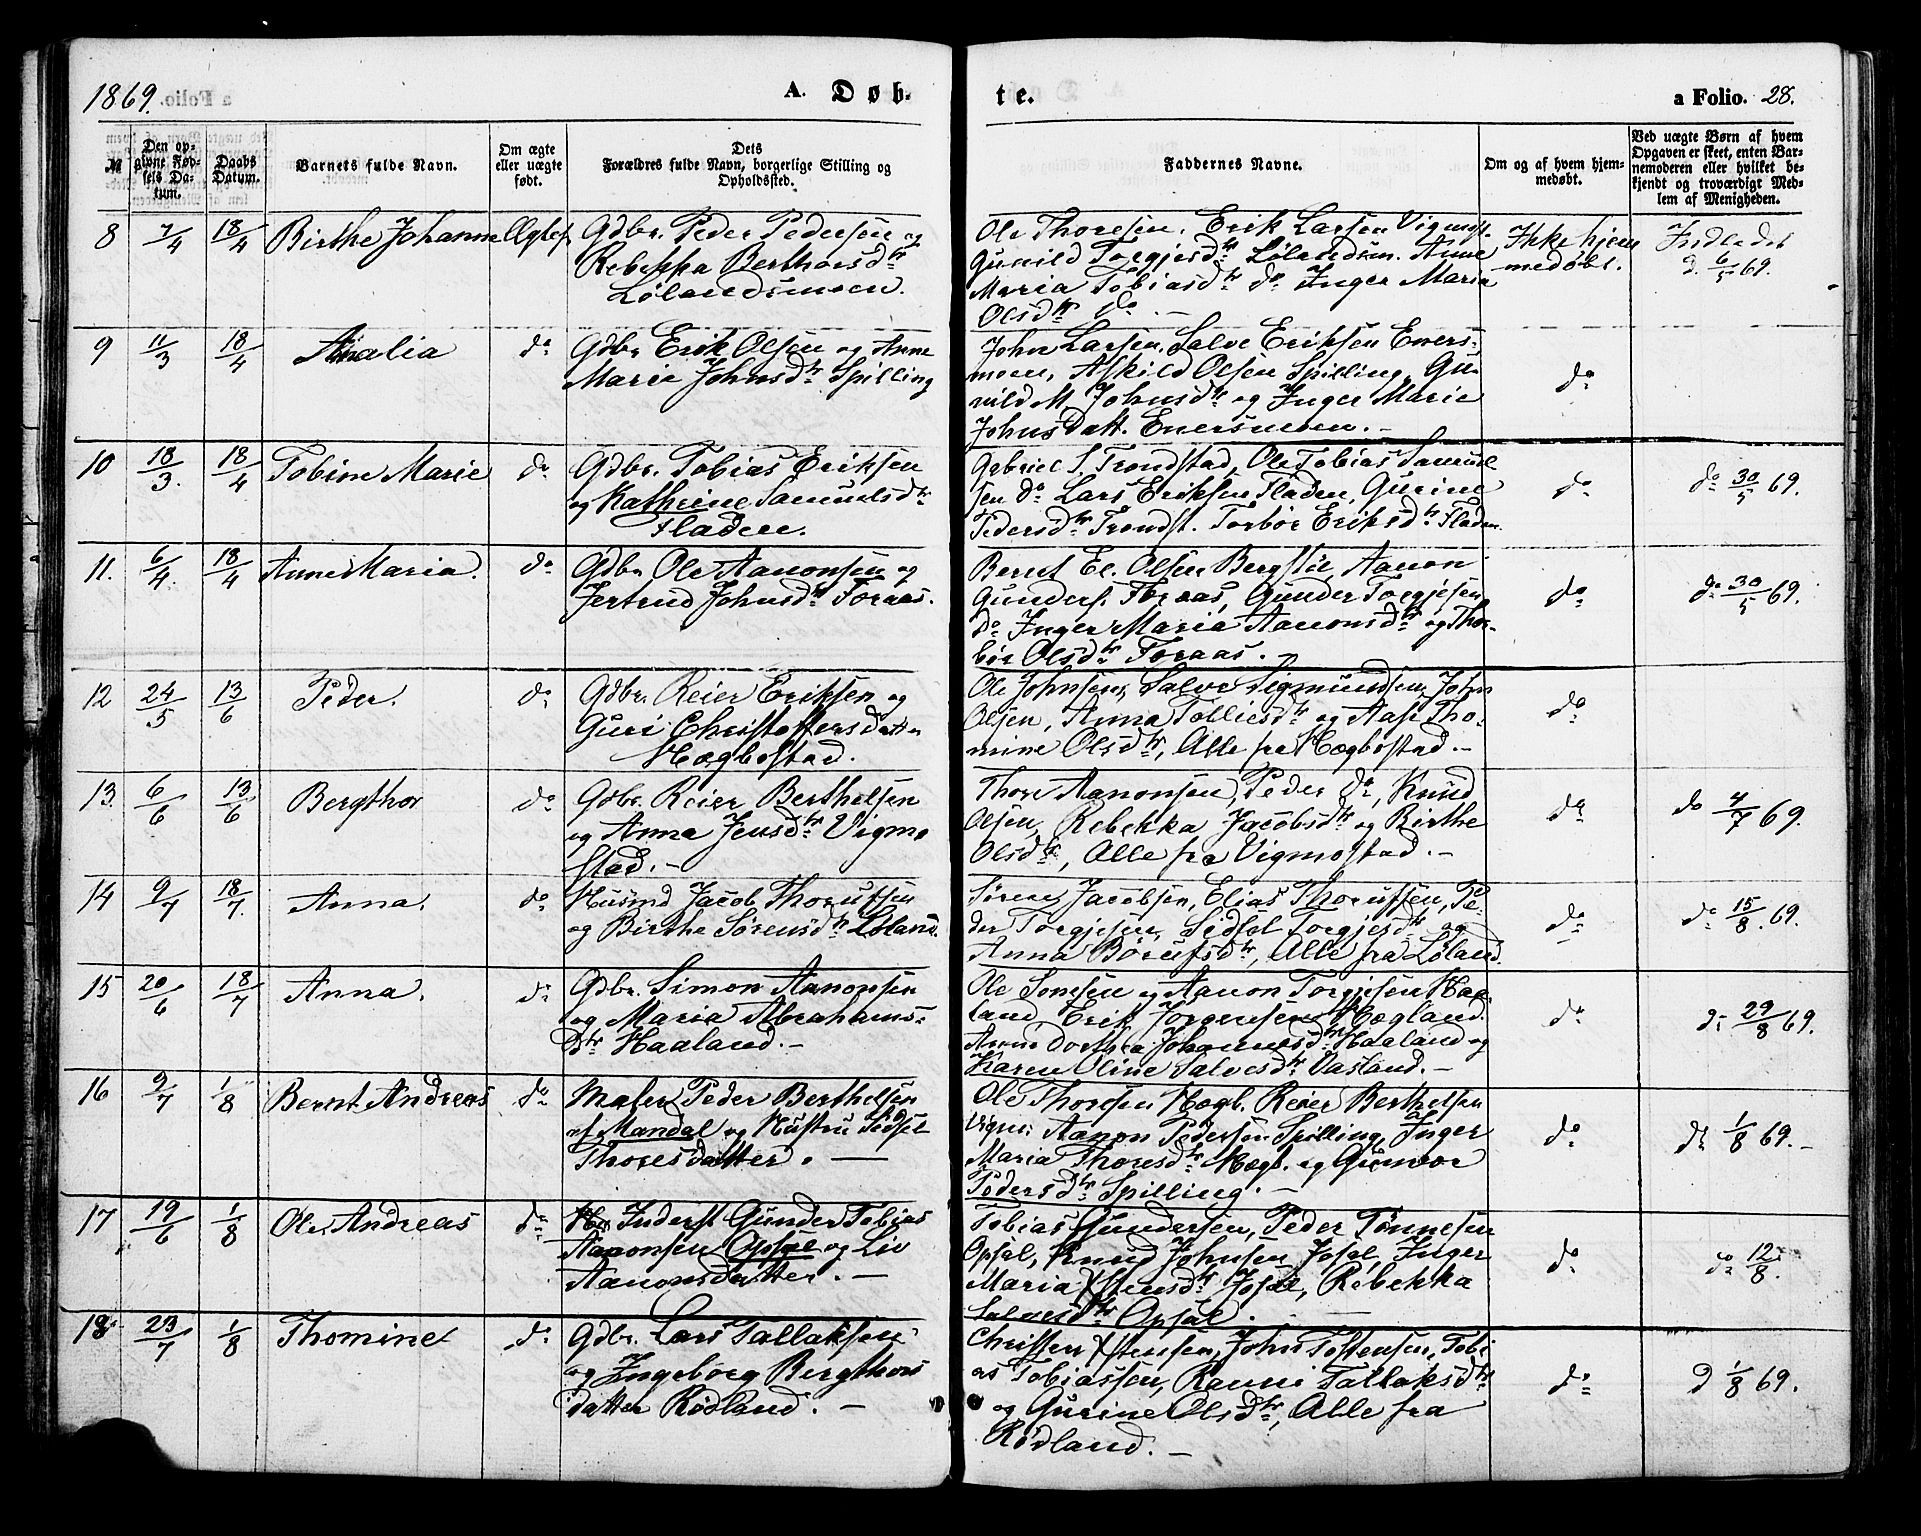 1869.
A. Døb-
te.
a Folio. 28.
№
Den op-
givne Fød-
sels Da-
tum.
Daabs
Datum.
Barnets fulde Navn.
Om ægte
eller uægte
født.
Dets
Forældres fulde Navn, borgerlige Stilling og
Opholdsted.
Faddernes Navne.
Om og af hvem hjem-
medøbt.
Ved uægte Børn af hvem
Opgaven er skeet, enten Bar-
nemoderen eller hvilket be-
kjendt og troværdigt Med-
lem af Menigheden.
8 7/4 18/4 Birthe Johanne Ægtef.
Gdbr. Peder Pedersen og
Rebekka Berthorsdtr
Lølandsmoen.
Ole Thoresen, Erik Larsen Vigmst.
Gunild Torgjesdtr Lølandsm. Anne
Maria Tobiasdtr do Inger Maria
Olsdtr do. -
Ikke hjem
medøbt.
Indledet
d. 6/5 69.
9 11/3 18/4 Amalia do
Gdbr. Erik Olsen og Anne
Marie Johnsdtr Spilling
John Larsen, Salve Eriksen Eners-
moen, Askild Olsen Spilling, Gu-
nild M. Johnsdtr og Inger Marie
Johnsdatt. Enersmoen. -
do
10 18/3. 18/4 Tobine Marie do
Gdbr. Tobias Eriksen
og Kathrine Samuelsdtr
Fladen.
Gabriel S. Trondstad, Ole Tobias Samuel
sen do Lars Eriksen Fladen, Gurine
Pedersdtr Trondst. Torbør Eriksdtr Fladen
do
do 30/5 69.
11. 6/4. 18/4 Anne Maria. do
Gdbr. Ole Aanonsen og
Jertrud Johnsdtr Foraas.
Bernt El. Olsen Bergstøl, Aanon
Gunders. Foraas, Gunder Torgjesen
do Inger Maria Aanonsdtr og Thor-
bør Olsdtr Foraas. -
do
do 30/5 69.
12 24/5 13/6 Peder. do
Gdbr. Reier Eriksen og
Guri Christoffersdatter
Hægbostad.
Ole Johnsen, Salve Sigmundsen, John
Olsen, Anna Tolliesdtr og Aase Tho-
mine Olsdtr, Alle fra Hægbostad. -
do
13. 6/6 13/6 Bergthor do
Gdbr. Reier Berthelsen
og Anna Jensdtr Vigmo
stad. -
Thore Aanonsen, Peder do, Knud
Olsen, Rebekka Jacobsdtr og Birthe
Olsdtr, Alle fra Vigmostad. -
do
do 4/7 69.
14 9/7 18/7. Anna. do
Husmd Jacob Thorufsen
og Birthe Sørensdtr Løland.
Søren Jacobsen, Elias Thorufsen, Pe-
der Torgjesen, Sidsel Torgjesdtr og
Anna Børufsdtr, Alle fra Løland.
do
do 15/8. 69.
15 20/6 18/7 Anna. do
Gdbr. Simon Aanonsen
og Maria Abrahams-
dtr Haaland. -
Ole Simesen og Aanon Torgjesen Haa-
land Erik Jørgensen Hægland.
Anne Dorthea Johannesdtr Haaland og
Karen Oline Salvesdtr Vasland. -
do
do 29/8 69.
16 9/7 1/8 Bernt Andreas do
Maler Peder Berthelsen
af Mandal og Hustru Sidsel
Thoresdatter. -
Ole Thoresen Hægb. Reier Berthelsen
Vigm. Aanon Pedersen Spilling, Inger
Maria Thoresdtr Hægb. og Gunvor
Pedersdtr Spilling. -
do
do 1/8 69. -
17 19/6 1/8 Ole Andreas do
Inderst Gunder Tobias
Aanonsen Opsal og Liv
Aanonsdatter. -
Tobias Gundersen, Peder Tønnesen
Opsal, Knud Johnsen Josal, Inger
Maria Stensdtr Josal, Rebekka
Salvesdtr Opsal. -
do
do 12/8.
18 23/7 1/8 Thomine do
Gdbr. Lars Tallaksen
og Ingeborg Bergthors
datter Rødland. -
Christen Stensen, John Tostensen, Tobi
as Tobiassen, Ranni Tallaksdtr
og Gurine Olsdtr, Alle fra
Rødland. -
do
d 1/8 69.